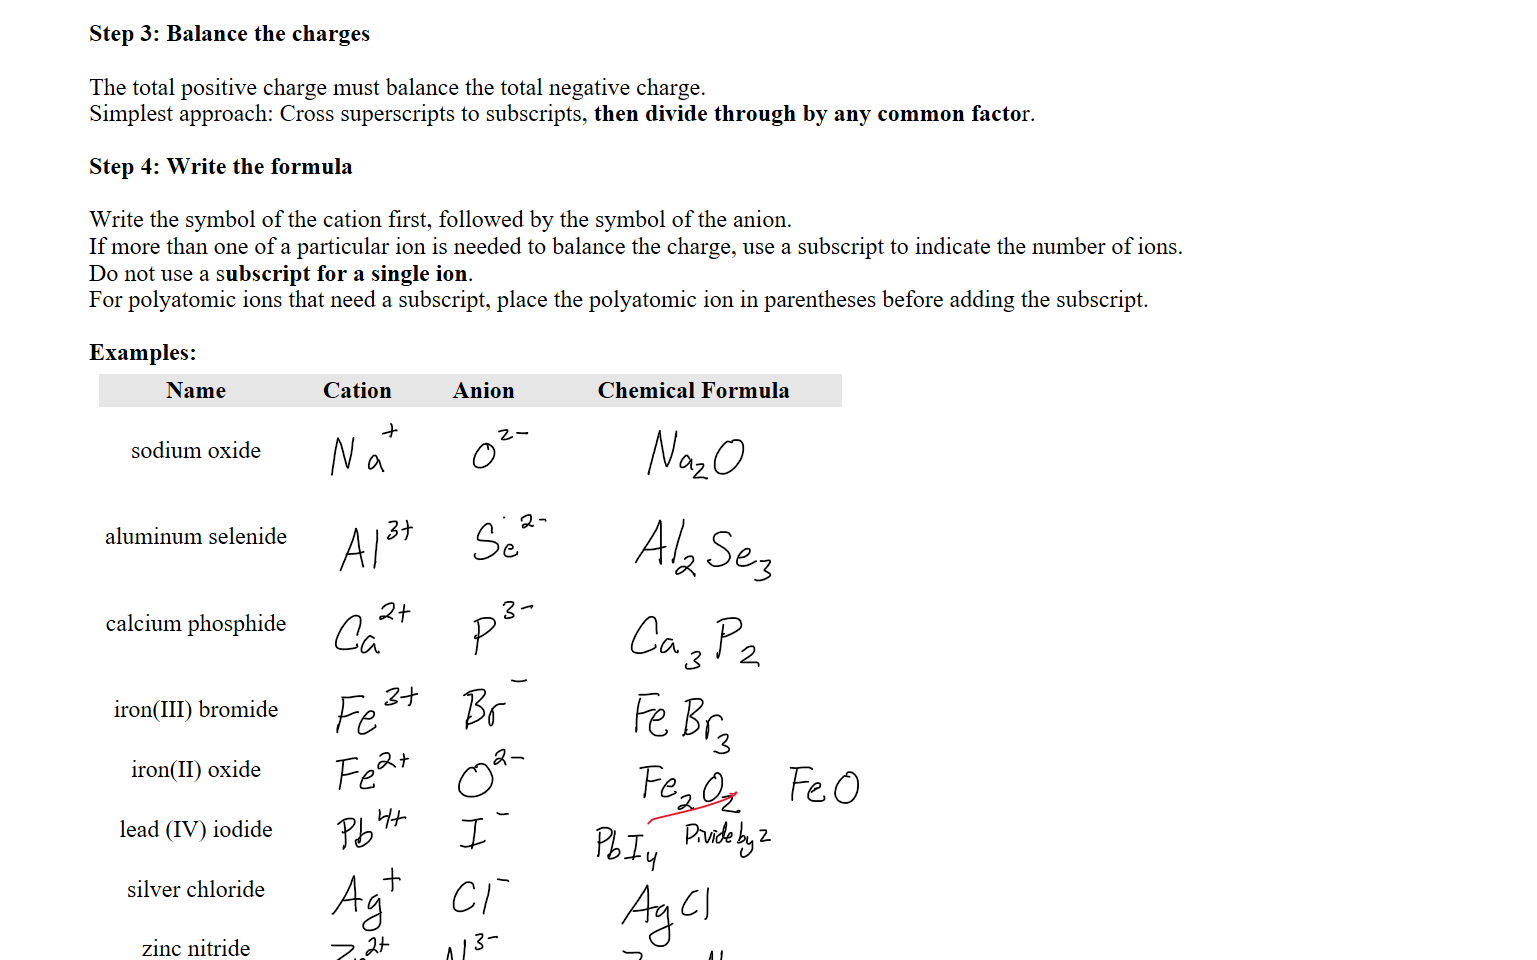 Step 3: Balance the charges
The total positive charge must balance the total negative charge.
Simplest approach: Cross superscripts to subscripts, then divide through by any common factor.
Step 4: Write the formula
Write the symbol of the cation first, followed by the symbol of the anion.
If more than one of a particular ion is needed to balance the charge, use a subscript to indicate the number of ions.
Do not use a subscript for a single ion.
For polyatomic ions that need a subscript, place the polyatomic ion in parentheses before adding the subscript.
Examples:
Name Cation Anion Chemical Formula
sodium oxide Na⁺ O²⁻ Na₂O
aluminum selenide Al³⁺ Se²⁻ Al₂Se₃
calcium phosphide Ca²⁺ P³⁻ Ca₃P₂
iron(III) bromide Fe³⁺ Br⁻ FeBr₃
iron(II) oxide Fe²⁺ O²⁻ Fe₂O₂ FeO
lead (IV) iodide Pb⁴⁺ I⁻ PbI₄ Divide by 2
silver chloride Ag⁺ Cl⁻ AgCl
zinc nitride 2+ 3-